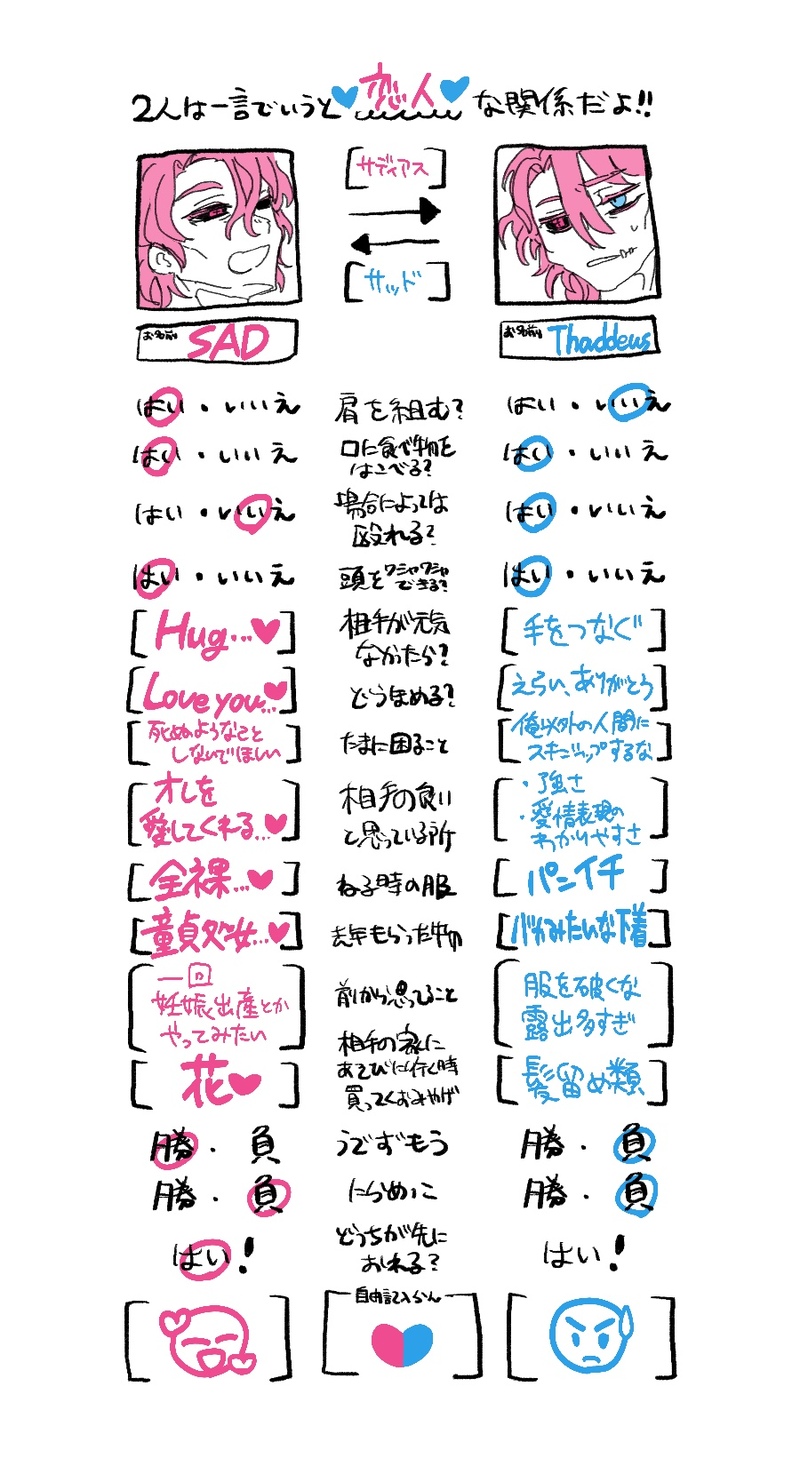 2人は一言でいうと恋人な関係だよ!!
サディアス
サッド
お名前 SAD
お名前 Thaddeus
はい・いいえ 肩を組む? はい・いいえ
はい・いいえ 口に食べ物を はい・いいえ
はこべる?
はい・いいえ 場合によっては はい・いいえ
殴れる?
はい・いいえ 頭をワシャワシャ はい・いいえ
できる?
Hug...♥ 相手が元気 手をつなぐ
なかったら?
Love you...♥ どうほめる? えらい、ありがとう
死ぬようなこと たまに困ること 俺以外の人間に
しないでほしい スキンシップするな
オレを 相手の良い ・強さ
愛してくれる...♥ と思っている所 ・愛情表現の
わかりやすさ
全裸...♥ ねる時の服 パンイチ
童貞処女...♥ 去年もらった物 バカみたいな下着
一回 前から思ってること 服を破くな
妊娠出産とか 露出多すぎ
やってみたい
花♥ 相手の家に 髪留め類
あそびに行く時
買ってくおみやげ
勝・負 うでずもう 勝・負
勝・負 にらめっこ 勝・負
はい! どっちが先に はい!
おれる?
自由記入らん